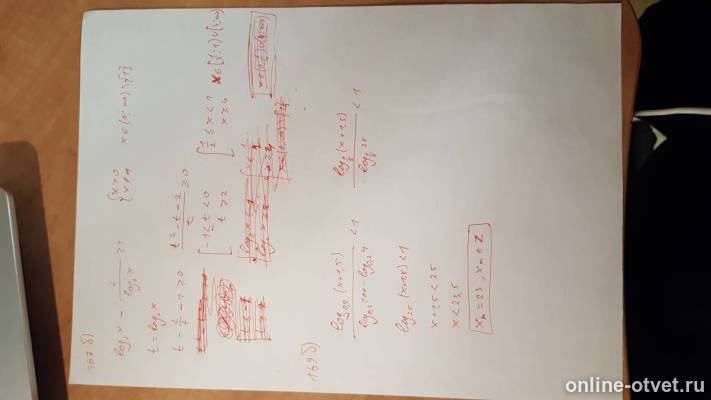 167 б)
log₂x − 2/log₂x ≥ 1
{ x > 0
x ≠ 1
x ∈ (0; ∞) \ {1}
t = log₂x
t − 2/t − 1 ≥ 0
(t² − t − 2)/t ≥ 0
[ −1 ≤ t < 0
t ≥ 2
[ 1/2 ≤ x < 1
x ≥ 4
x ∈ [1/2; 1) ∪ [4; ∞)
169 б)
log₀,₂(x+1,5)/(log₀,₂100 − log₀,₂4) < 1
log₂₅(x+1,5) < 1
x + 1,5 < 25
x < 23,5
xₘ = 23, xₘ ∈ Z
online-otvet.ru